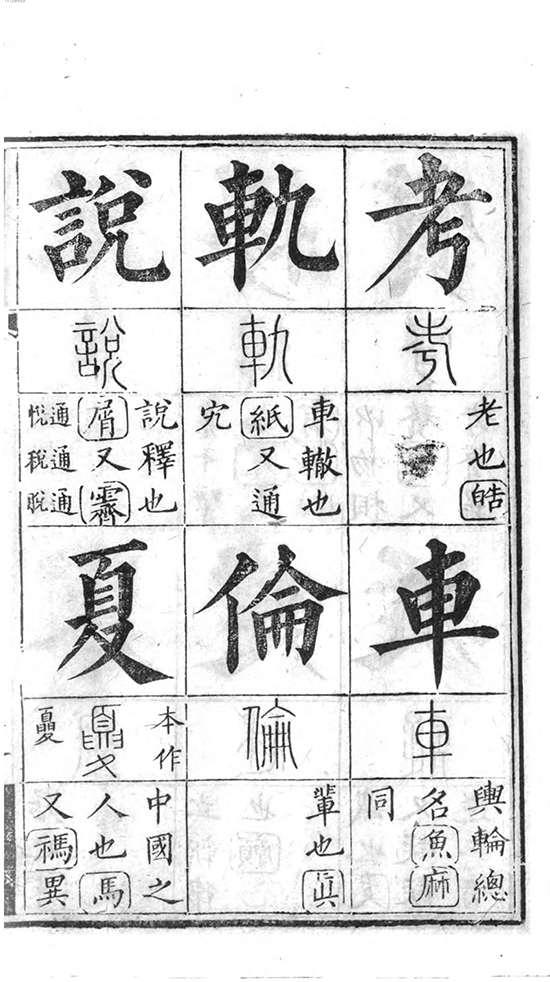 考
考
老也皓
車
車
輿輪總
名魚麻
同
軌
軌
車轍也
紙又通
宄
倫
倫
輩也眞
說
說
說釋也
屑又霽
通悅
通稅
通脫
夏
本作
夏
中國之
人也馬
又禡異